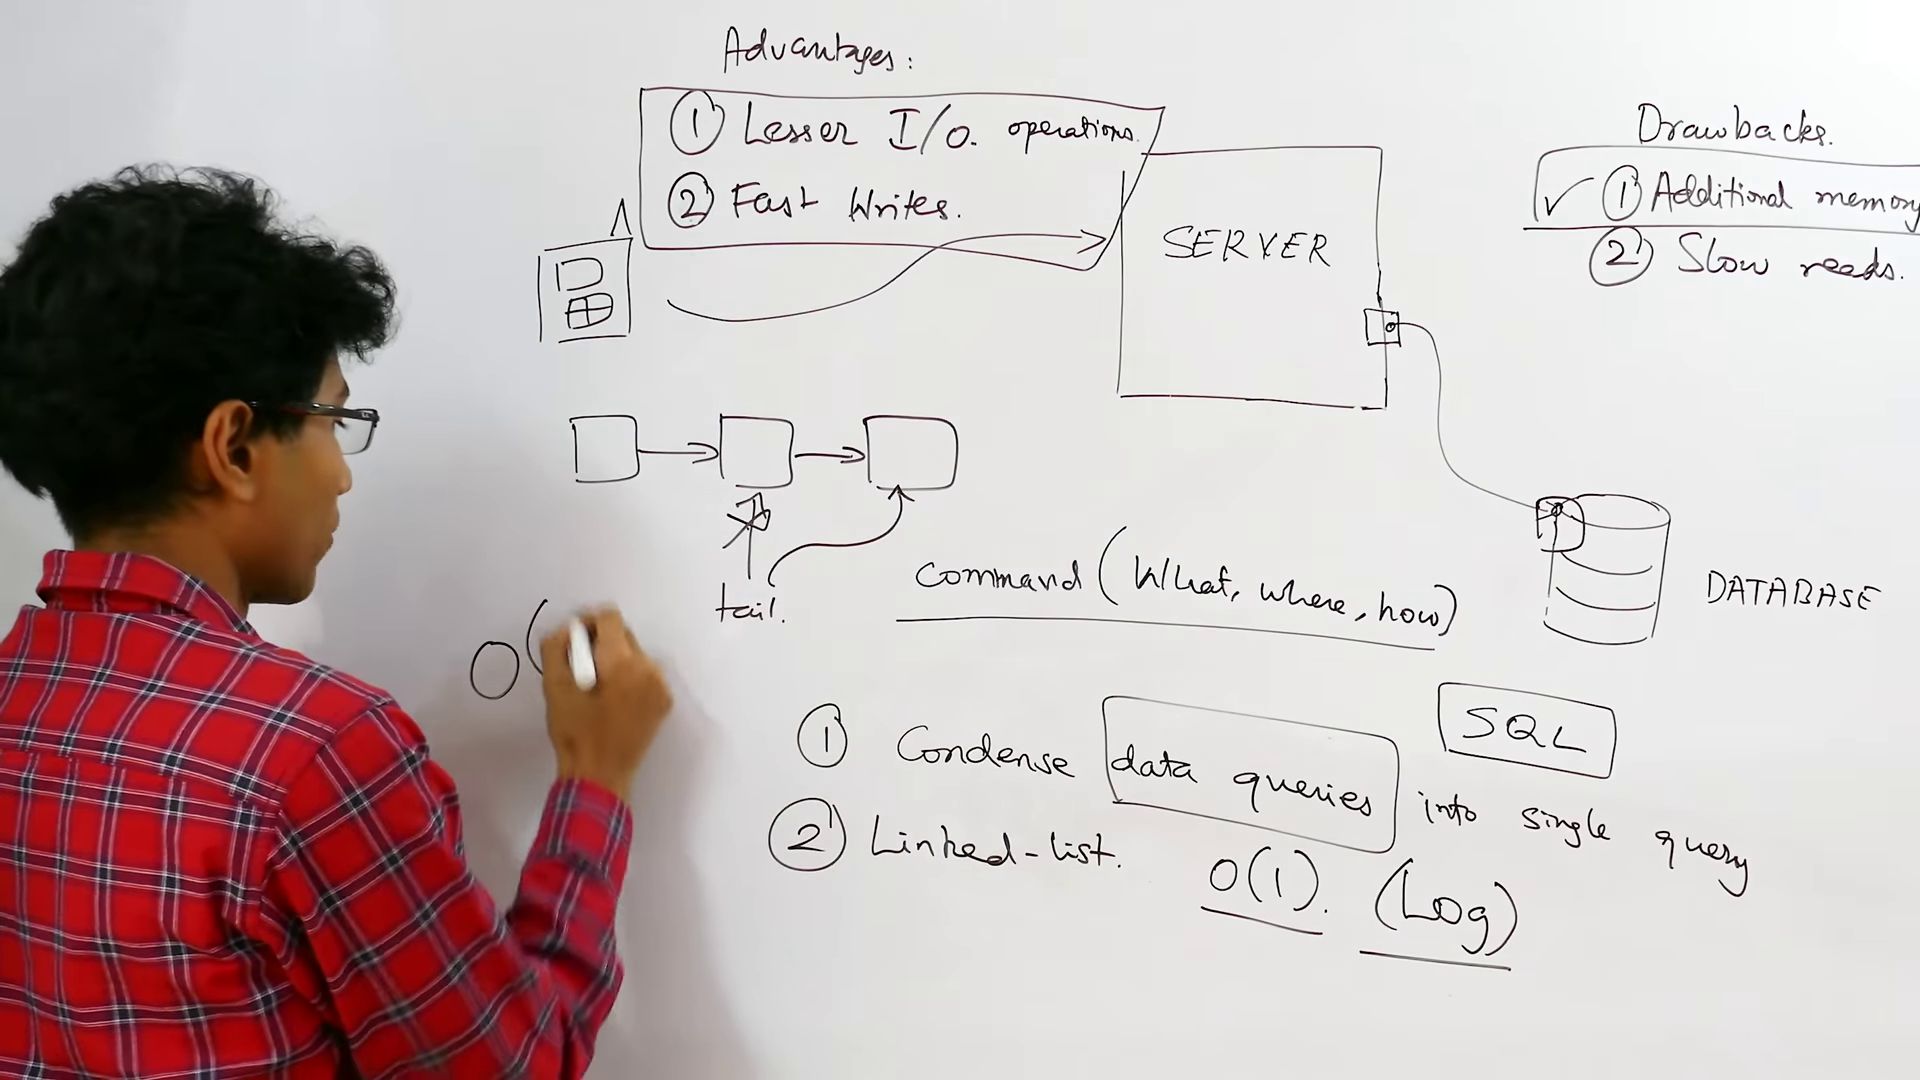 Advantages:
① Lesser I/O. operations.
② Fast Writes.
SERVER
Drawbacks.
✓ ① Additional memory
② Slow reads.
tail.
Command (What, where, how)
DATABASE
O(
SQL
① Condense data queries into single query
② Linked-list.
O(1). (Log)